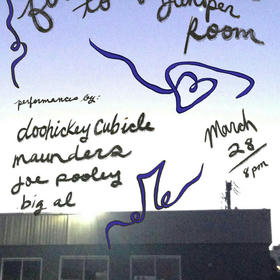 to
Juniper
Room
performances by:
doohickey Cubicle
maunders
Joe Pooley
big al
March
28
8pm